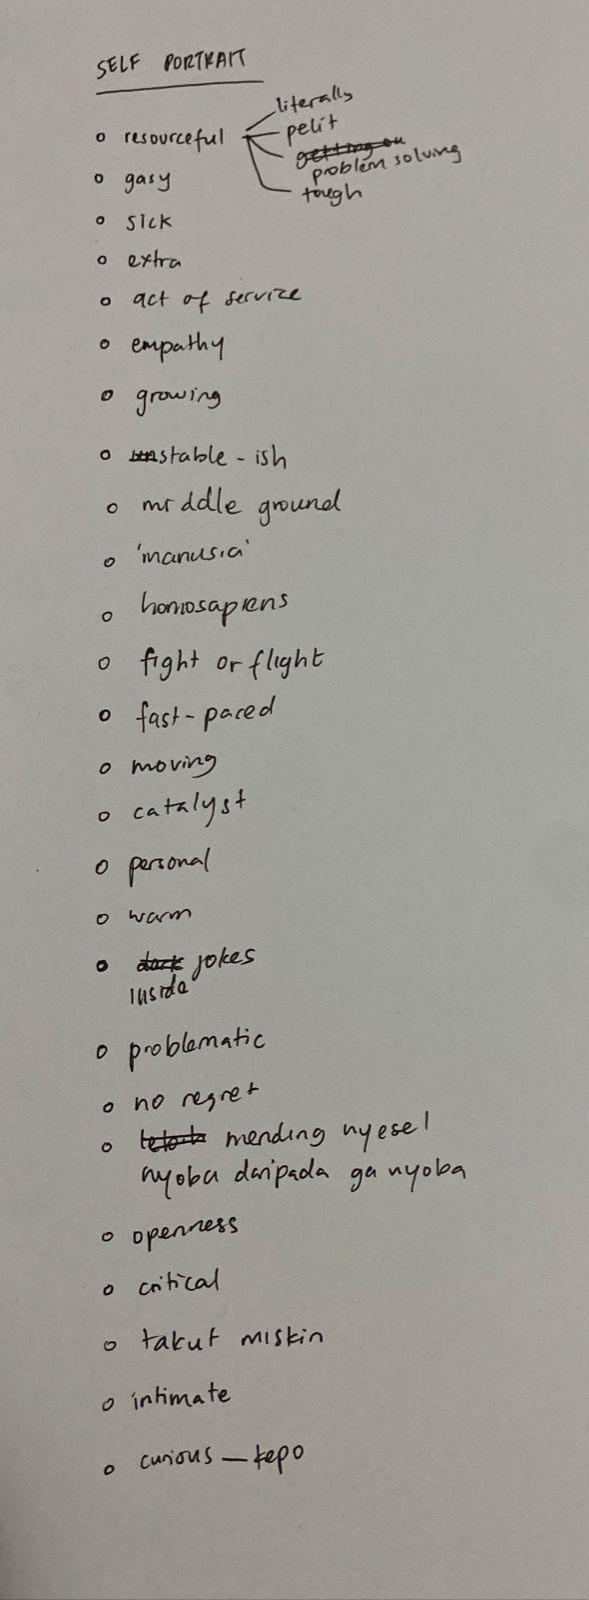 SELF PORTRAIT
resourceful
literally
pelit
problem solving
tough
gasy
sick
extra
act of service
empathy
growing
stable-ish
middle ground
'manusia'
homosapiens
fight or flight
fast-paced
moving
catalyst
personal
warm
dark jokes
inside
problematic
no regret
mending nyesel
nyoba daripada ga nyoba
openness
critical
takut miskin
intimate
curious — kepo